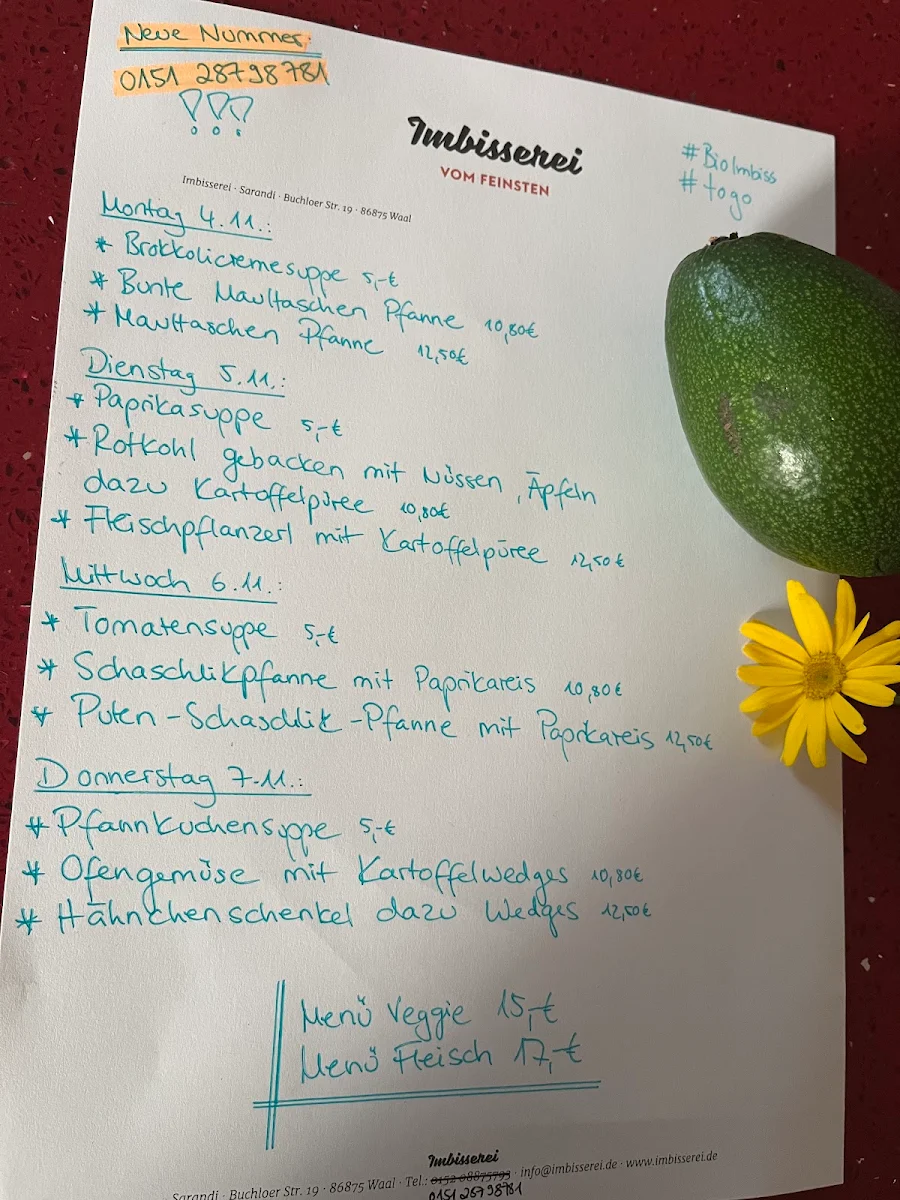 Neue Nummer:
0151 28798781
!!!
Imbisserei
VOM FEINSTEN
#BioImbiss
#togo
Imbisserei · Sarandi · Buchloer Str. 19 · 86875 Waal
Montag 4.11.:
* Brokkolicremesuppe 5,-€
* Bunte Maultaschen Pfanne 10,80€
* Maultaschen Pfanne 12,50€
Dienstag 5.11.:
* Paprikasuppe 5,-€
* Rotkohl gebacken mit Nüssen, Äpfeln
dazu Kartoffelpüree 10,80€
* Fleischpflanzerl mit Kartoffelpüree 12,50€
Mittwoch 6.11.:
* Tomatensuppe 5,-€
* Schaschlikpfanne mit Paprikareis 10,80€
* Puten-Schaschlik-Pfanne mit Paprikareis 12,50€
Donnerstag 7.11.:
* Pfannkuchensuppe 5,-€
* Ofengemüse mit Kartoffelwedges 10,80€
* Hähnchenschenkel dazu Wedges 12,50€
Menü Veggie 15,-€
Menü Fleisch 17,-€
Imbisserei
Sarandi · Buchloer Str. 19 · 86875 Waal · Tel.: 0152 08875793 · info@imbisserei.de · www.imbisserei.de